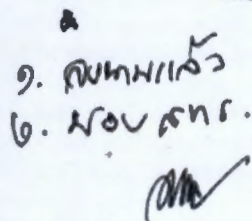 ๑. ลงนามแล้ว
๒. มอบ สทธ.